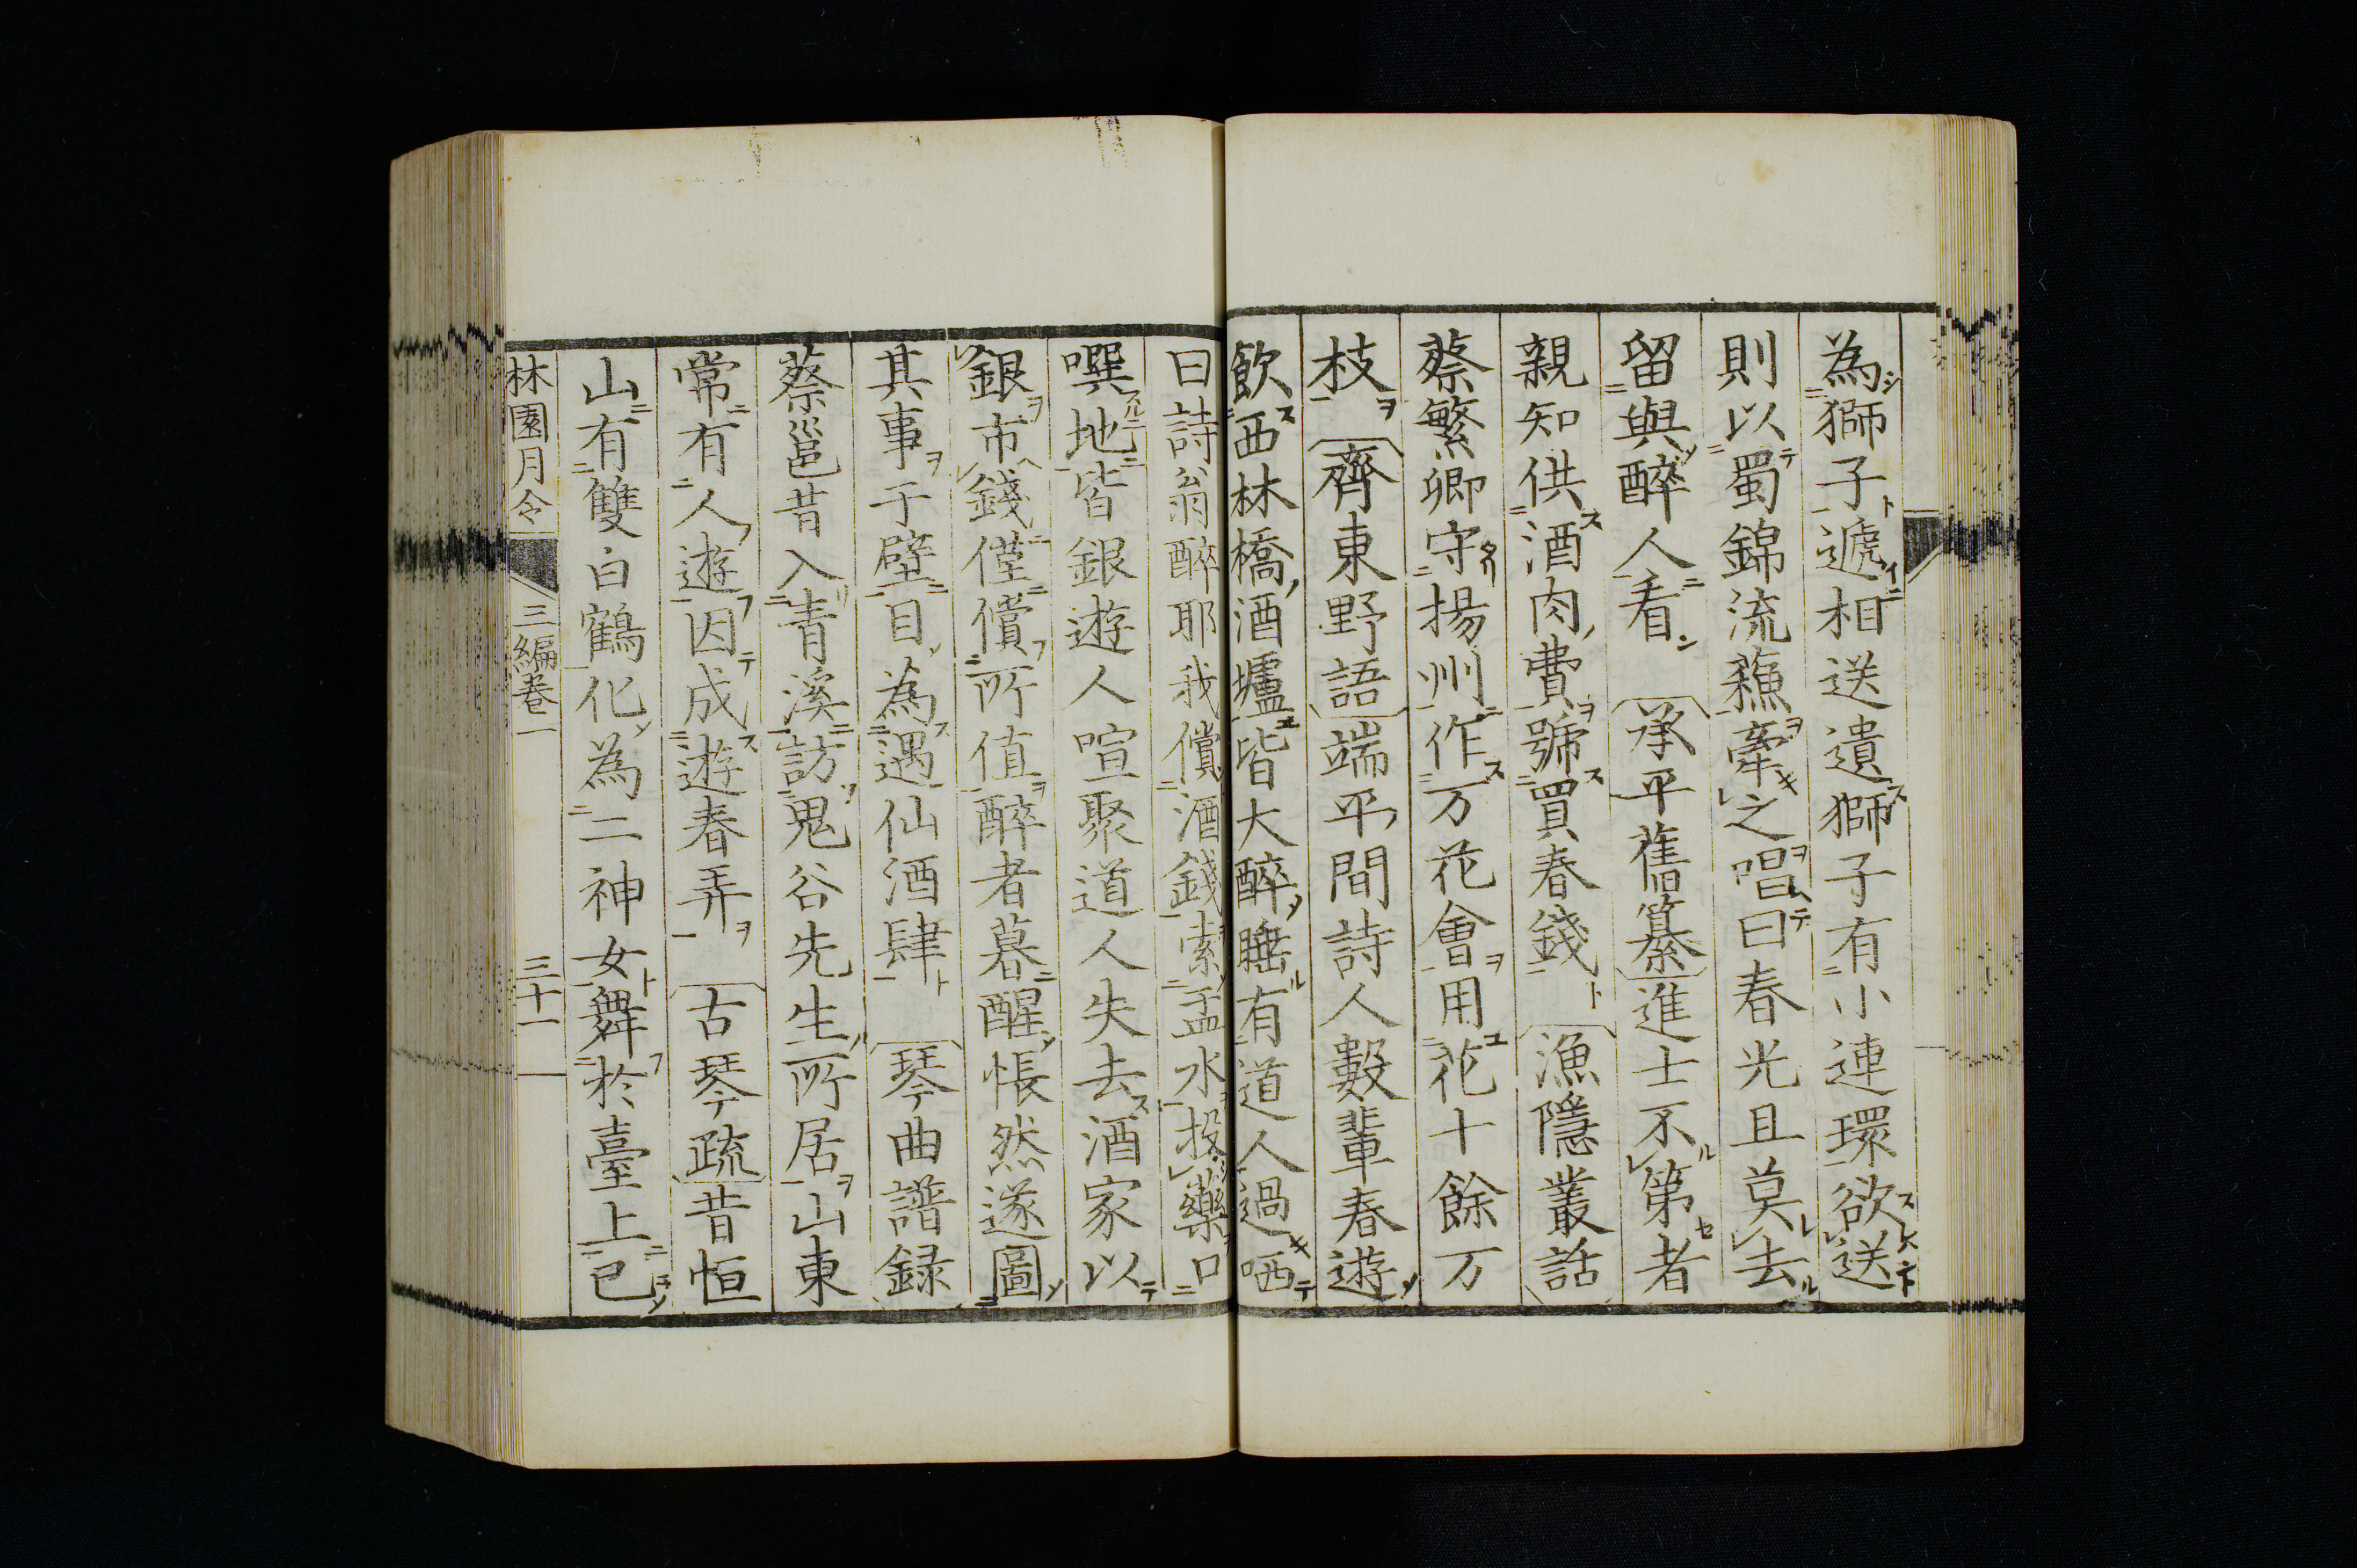 為獅子遞相送遺獅子有小連環欲送
則以蜀錦流蘓牽之唱曰春光且莫去
留與醉人看 承平舊纂進士不第者
親知供酒肉費號買春錢 漁隱叢話
蔡繁卿守揚州作万花會用花十餘万
枝 齊東野語端平間詩人數輩春遊
飲西林橋酒壚皆大醉睡有道人過哂
曰詩翁醉耶我償酒錢索盂水投藥口
噀地皆銀遊人喧聚道人失去酒家以
銀市錢僅償所值醉者暮醒悵然遂圖
其事于壁目為遇仙酒肆 琴曲譜録
蔡邕昔入青溪訪鬼谷先生所居山東
常有人遊因成遊春弄 古琴疏昔恒
山有雙白鶴化為二神女舞於臺上已
林園月令 三編卷一 三十一